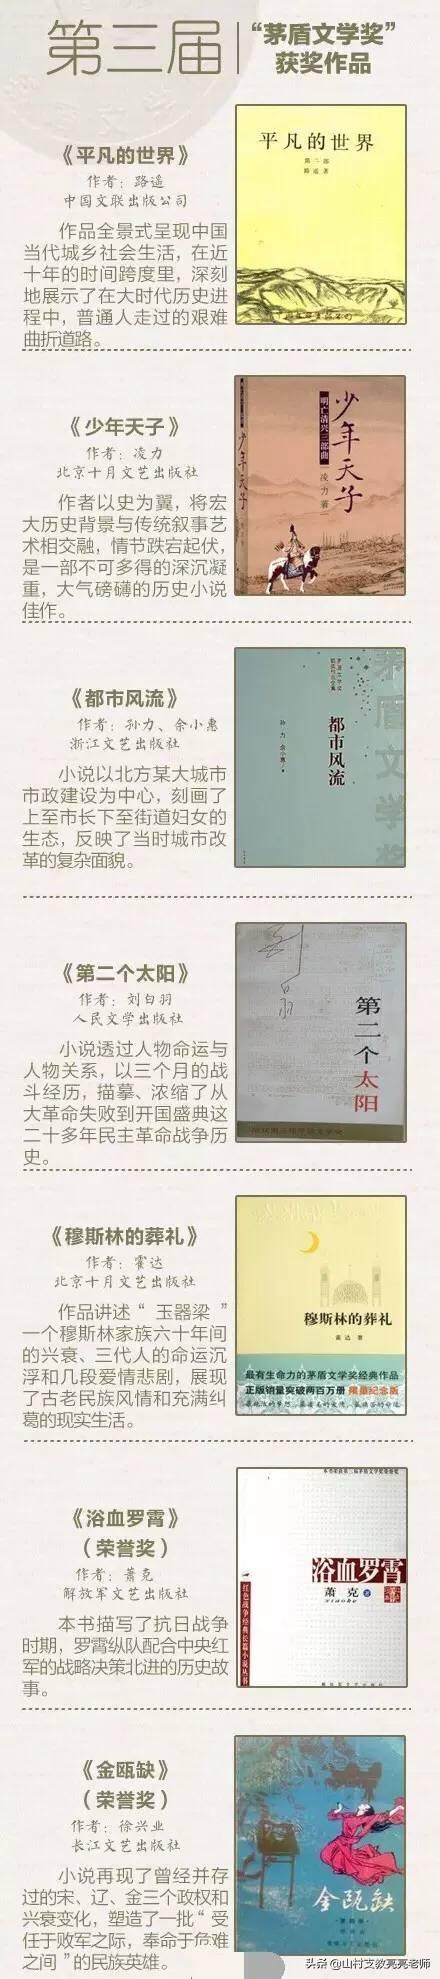 第三届
“茅盾文学奖”
获奖作品
《平凡的世界》
作者：路遥
中国文联出版公司
作品全景式呈现中国
当代城乡社会生活，在近
十年的时间跨度里，深刻
地展示了在大时代历史进
程中，普通人走过的艰难
曲折道路。
平凡的世界
第二部
路遥著
《少年天子》
作者：凌力
北京十月文艺出版社
作者以史为翼，将宏
大历史背景与传统叙事艺
术相交融，情节跌宕起伏，
是一部不可多得的深沉凝
重，大气磅礴的历史小说
佳作。
少年天子
明亡清兴三部曲
凌力 著
少年天子
《都市风流》
作者：孙力、余小惠
浙江文艺出版社
小说以北方某大城市
市政建设为中心，刻画了
上至市长下至街道妇女的
生态，反映了当时城市改
革的复杂面貌。
茅盾文学奖
都市风流
孙力 余小惠
《第二个太阳》
作者：刘白羽
人民文学出版社
小说透过人物命运与
人物关系，以三个月的战
斗经历，描摹、浓缩了从
大革命失败到开国盛典这
二十多年民主革命战争历
史。
第二个太阳
《穆斯林的葬礼》
作者：霍达
北京十月文艺出版社
作品讲述“玉器梁”
一个穆斯林家族六十年间
的兴衰、三代人的命运沉
浮和几段爱情悲剧，展现
了古老民族风情和充满纠
葛的现实生活。
穆斯林的葬礼
霍达 著
最有生命力的茅盾文学奖经典作品
正版销量突破两百万册 限量纪念版
《浴血罗霄》
（荣誉奖）
作者：萧克
解放军文艺出版社
本书描写了抗日战争
时期，罗霄纵队配合中央红
军的战略决策北进的历史故
事。
浴血罗霄
萧克 著
xiaoke
红色战争经典长篇小说丛书
《金瓯缺》
（荣誉奖）
作者：徐兴业
长江文艺出版社
小说再现了曾经并存
过的宋、辽、金三个政权和
兴衰变化，塑造了一批“受
任于败军之际，奉命于危难
之间”的民族英雄。
金瓯缺
头条 @山村支教亮亮老师